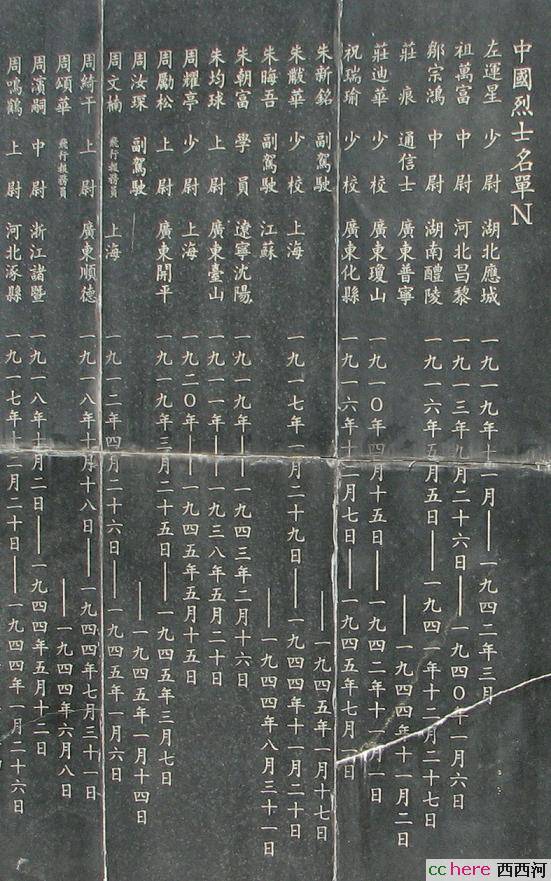 中國烈士名單N
左運星 少尉 湖北應城 一九一九年十一月——一九四二年三月
祖萬富 中尉 河北昌黎 一九一三年九月二十六日——一九四〇年一月六日
鄒宗鴻 中尉 湖南醴陵 一九一六年五月五日——一九四一年十二月二十七日
莊痕 通信士 廣東普寧 ——一九四四年十一月二日
莊迪華 少校 廣東瓊山 一九一〇年四月十五日——一九四二年十一月一日
祝瑞瑜 少校 廣東化縣 一九一六年十二月七日——一九四五年七月 日
朱新銘 副駕駛 ——一九四五年一月十七日
朱骰華 少校 上海 一九一七年一月二十九日——一九四四年十一月二十日
朱晦吾 副駕駛 江蘇 ——一九四四年八月三十一日
朱朝富 學員 遼寧沈陽 一九一九年——一九四三年二月十六日
朱均球 上尉 廣東臺山 一九一一年——一九三八年五月二十日
周耀亭 少尉 上海 一九二〇年——一九四五年五月十五日
周勵松 上尉 廣東開平 一九一九年三月二十五日——一九四五年三月七日
周汝琛 副駕駛 ——一九四五年一月十四日
周文楠 飛行報務員 上海 一九一二年四月二十六日——一九四五年一月六日
周綺千 上尉 廣東順德 一九一八年十月十八日——一九四四年七月三十一日
周頌華 飛行報務員 ——一九四四年六月八日
周濱嗣 中尉 浙江諸暨 一九一八年十月二日——一九四四年五月十二日
周鳴鶴 上尉 河北涿縣 一九一七年十二月二十日——一九四四年一月二十六日
cchere 西西河